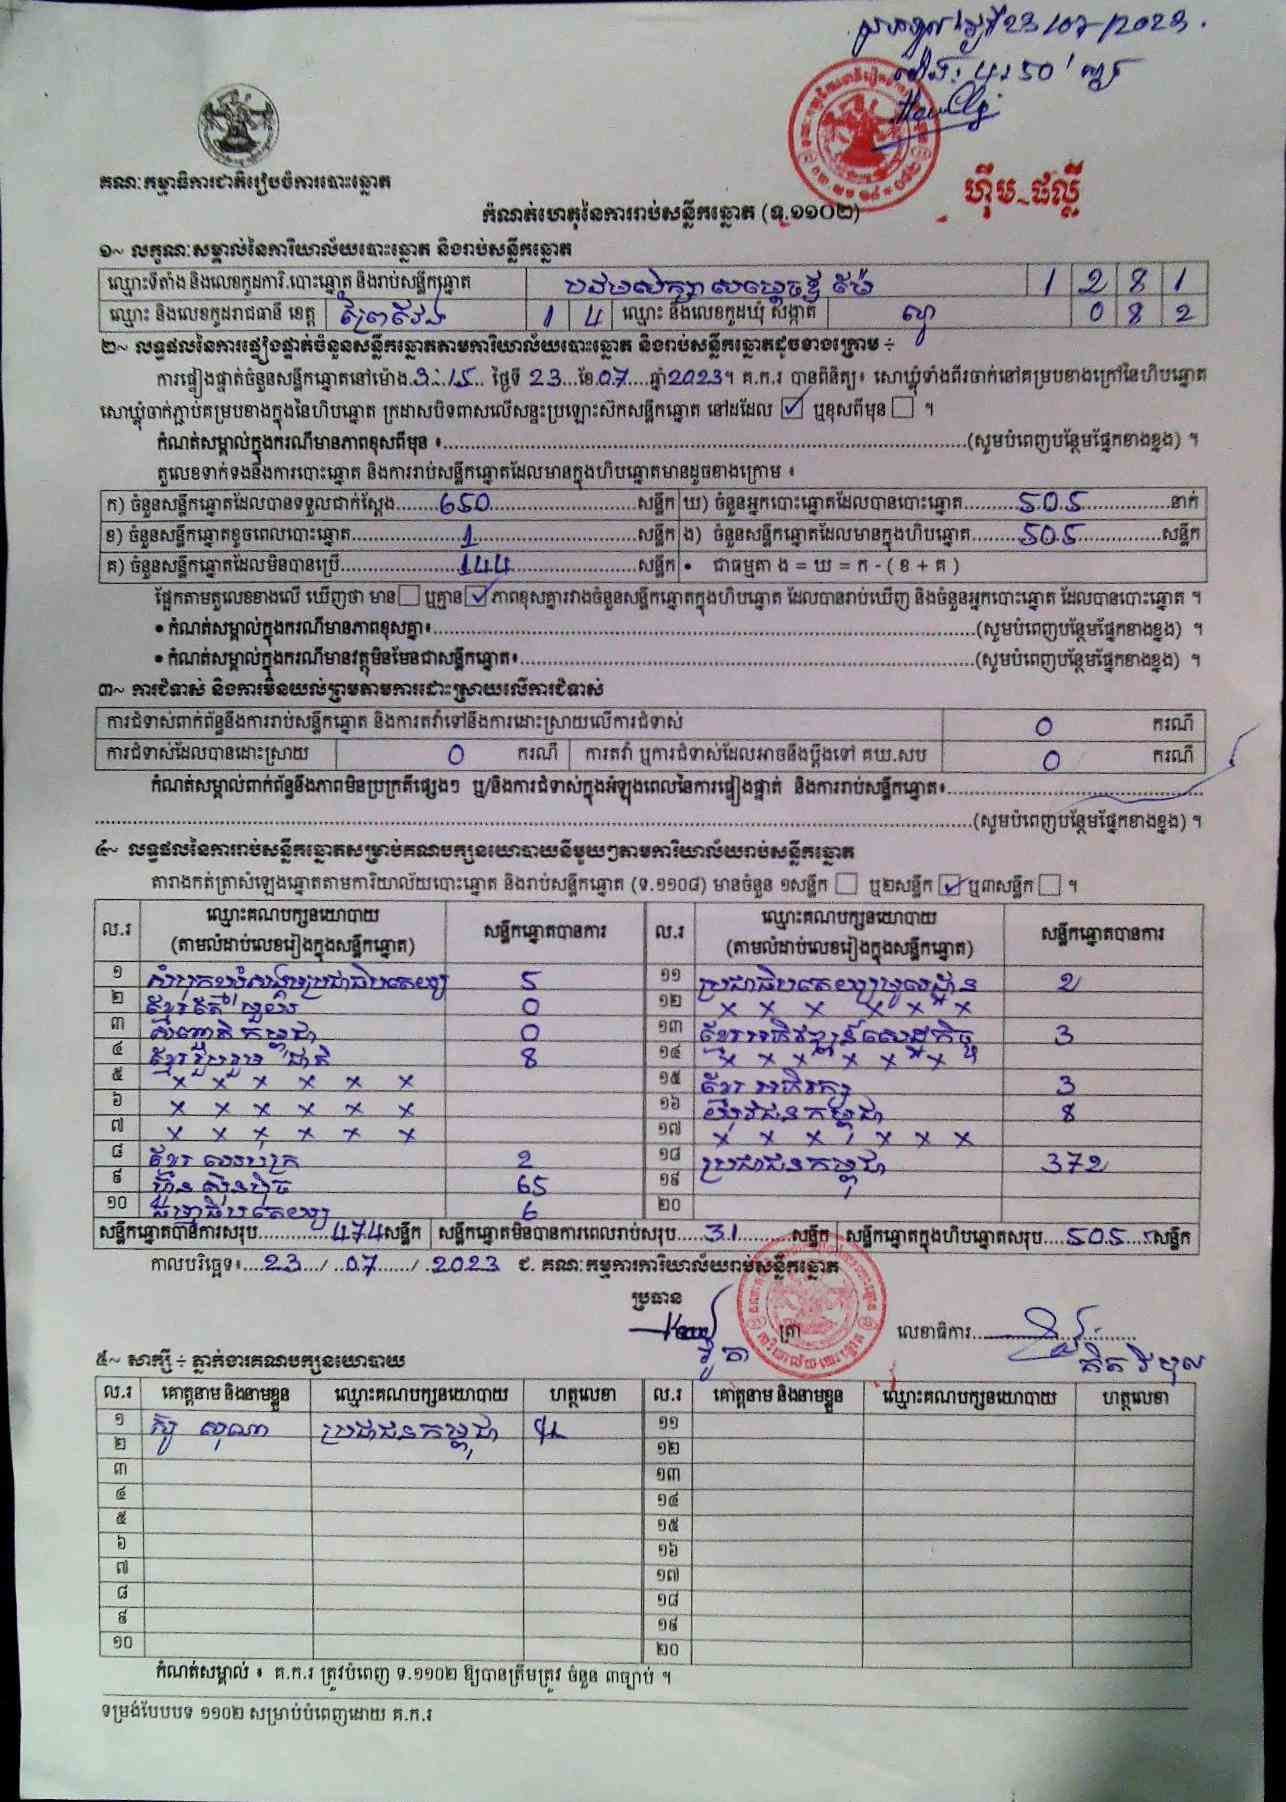 23/07/2023.
50'
គណៈកម្មាធិការជាតិរៀបចំការបោះឆ្នោត
ហ៊ឹម ផល្លី
កំណត់ហេតុនៃការរាប់សន្លឹកឆ្នោត (ទ.១១០២)
១~ លក្ខណៈសម្គាល់នៃការិយាល័យបោះឆ្នោត និងរាប់សន្លឹកឆ្នោត
ឈ្មោះទីតាំង និងលេខកូដការិ.បោះឆ្នោត និងរាប់សន្លឹកឆ្នោត បឋមសិក្សា សម្តេចឪ ម៉ែ 1 2 8 1
ឈ្មោះ និងលេខកូដរាជធានី ខេត្ត ព្រៃវែង 1 4 ឈ្មោះ និងលេខកូដឃុំ សង្កាត់ ល្វា 0 8 2
២~ លទ្ធផលនៃការផ្ទៀងផ្ទាត់ចំនួនសន្លឹកឆ្នោតតាមការិយាល័យបោះឆ្នោត និងរាប់សន្លឹកឆ្នោតដូចខាងក្រោម ÷
ការផ្ទៀងផ្ទាត់ចំនួនសន្លឹកឆ្នោតនៅម៉ោង.3:15.. ថ្ងៃទី 23...ខែ.07....ឆ្នាំ2023។ គ.ក.រ បានពិនិត្យ៖ សោឃ្លុំទាំងពីរចាក់នៅគម្របខាងក្រៅនៃហិបឆ្នោត
សោឃ្លុំចាក់ភ្ជាប់គម្របខាងក្នុងនៃហិបឆ្នោត ក្រដាសបិទពាសលើសន្ទះប្រឡោះស៊កសន្លឹកឆ្នោត នៅដដែល ☑ ឬខុសពីមុន ☐ ។
កំណត់សម្គាល់ក្នុងករណីមានភាពខុសពីមុន ៖..........(សូមបំពេញបន្ថែមផ្នែកខាងខ្នង) ។
តួលេខទាក់ទងនឹងការបោះឆ្នោត និងការរាប់សន្លឹកឆ្នោតដែលមានក្នុងហិបឆ្នោតមានដូចខាងក្រោម ៖
ក) ចំនួនសន្លឹកឆ្នោតដែលបានទទួលជាក់ស្តែង........650..........សន្លឹក ឃ) ចំនួនអ្នកបោះឆ្នោតដែលបានបោះឆ្នោត..........505..........នាក់
ខ) ចំនួនសន្លឹកឆ្នោតខូចពេលបោះឆ្នោត..........1..........សន្លឹក ង) ចំនួនសន្លឹកឆ្នោតដែលមានក្នុងហិបឆ្នោត........505..........សន្លឹក
គ) ចំនួនសន្លឹកឆ្នោតដែលមិនបានប្រើ..........144..........សន្លឹក • ជាធម្មតា ង = ឃ = ក - ( ខ + គ )
ផ្អែកតាមតួលេខខាងលើ ឃើញថា មាន ☐ ឬគ្មាន ☑ ភាពខុសគ្នារវាងចំនួនសន្លឹកឆ្នោតក្នុងហិបឆ្នោត ដែលបានរាប់ឃើញ និងចំនួនអ្នកបោះឆ្នោត ដែលបានបោះឆ្នោត ។
• កំណត់សម្គាល់ក្នុងករណីមានភាពខុសគ្នា៖..........(សូមបំពេញបន្ថែមផ្នែកខាងខ្នង) ។
• កំណត់សម្គាល់ក្នុងករណីមានវត្ថុមិនមែនជាសន្លឹកឆ្នោត៖..........(សូមបំពេញបន្ថែមផ្នែកខាងខ្នង) ។
៣~ ការជំទាស់ និងការមិនយល់ព្រមតាមការដោះស្រាយលើការជំទាស់
ការជំទាស់ពាក់ព័ន្ធនឹងការរាប់សន្លឹកឆ្នោត និងការតវ៉ាទៅនឹងការដោះស្រាយលើការជំទាស់ 0 ករណី
ការជំទាស់ដែលបានដោះស្រាយ 0 ករណី ការតវ៉ា ឬការជំទាស់ដែលអាចនឹងប្តឹងទៅ គឃ.សប 0 ករណី
កំណត់សម្គាល់ពាក់ព័ន្ធនឹងភាពមិនប្រក្រតីផ្សេងៗ ឬ/និងការជំទាស់ក្នុងអំឡុងពេលនៃការផ្ទៀងផ្ទាត់ និងការរាប់សន្លឹកឆ្នោត៖..........
..........(សូមបំពេញបន្ថែមផ្នែកខាងខ្នង) ។
៤~ លទ្ធផលនៃការរាប់សន្លឹកឆ្នោតសម្រាប់គណបក្សនយោបាយនីមួយៗតាមការិយាល័យរាប់សន្លឹកឆ្នោត
តារាងកត់ត្រាសំឡេងឆ្នោតតាមការិយាល័យបោះឆ្នោត និងរាប់សន្លឹកឆ្នោត (ទ.១១០៨) មានចំនួន ១សន្លឹក ☐ ឬ២សន្លឹក ☑ ឬ៣សន្លឹក ☐ ។
ល.រ ឈ្មោះគណបក្សនយោបាយ (តាមលំដាប់លេខរៀងក្នុងសន្លឹកឆ្នោត) សន្លឹកឆ្នោតបានការ ល.រ ឈ្មោះគណបក្សនយោបាយ (តាមលំដាប់លេខរៀងក្នុងសន្លឹកឆ្នោត) សន្លឹកឆ្នោតបានការ
១ សំបុកឃ្មុំសង្គមប្រជាធិបតេយ្យ 5 ១១ ប្រជាធិបតេយ្យមូលដ្ឋាន 2
២ ខ្មែរតែមួយ 0 ១២ x x x x x x
៣ សញ្ជាតិកម្ពុជា 0 ១៣ ខ្មែរអភិវឌ្ឍន៍សេដ្ឋកិច្ច 3
៤ ខ្មែររួបរួមជាតិ 8 ១៤ x x x x x x
៥ x x x x x x ១៥ ខ្មែរ អភិរក្ស 3
៦ x x x x x x ១៦ យុវជនកម្ពុជា 8
៧ x x x x x x ១៧ x x x x x x
៨ ខ្មែរ 2 ១៨ ប្រជាជនកម្ពុជា 372
៩ ហ៊្វុនស៊ិនប៉ិច 65 ១៩
១០ ធម្មាធិបតេយ្យ 6 ២០
សន្លឹកឆ្នោតបានការសរុប..........474សន្លឹក សន្លឹកឆ្នោតមិនបានការពេលរាប់សរុប.....31..........សន្លឹក សន្លឹកឆ្នោតក្នុងហិបឆ្នោតសរុប....505...សន្លឹក
កាលបរិច្ឆេទ៖....23..../..07....../..2023 ជ. គណៈកម្មការការិយាល័យរាប់សន្លឹកឆ្នោត
ប្រធាន
ត្រា លេខាធិការ..........
៥~ សាក្សី ÷ ភ្នាក់ងារគណបក្សនយោបាយ
ល.រ គោត្តនាម និងនាមខ្លួន ឈ្មោះគណបក្សនយោបាយ ហត្ថលេខា ល.រ គោត្តនាម និងនាមខ្លួន ឈ្មោះគណបក្សនយោបាយ ហត្ថលេខា
១ សុណា ប្រជាជនកម្ពុជា ១១
២ ១២
៣ ១៣
៤ ១៤
៥ ១៥
៦ ១៦
៧ ១៧
៨ ១៨
៩ ១៩
១០ ២០
កំណត់សម្គាល់ ៖ គ.ក.រ ត្រូវបំពេញ ទ.១១០២ ឱ្យបានត្រឹមត្រូវ ចំនួន ៣ច្បាប់ ។
ទម្រង់បែបបទ ១១០២ សម្រាប់បំពេញដោយ គ.ក.រ